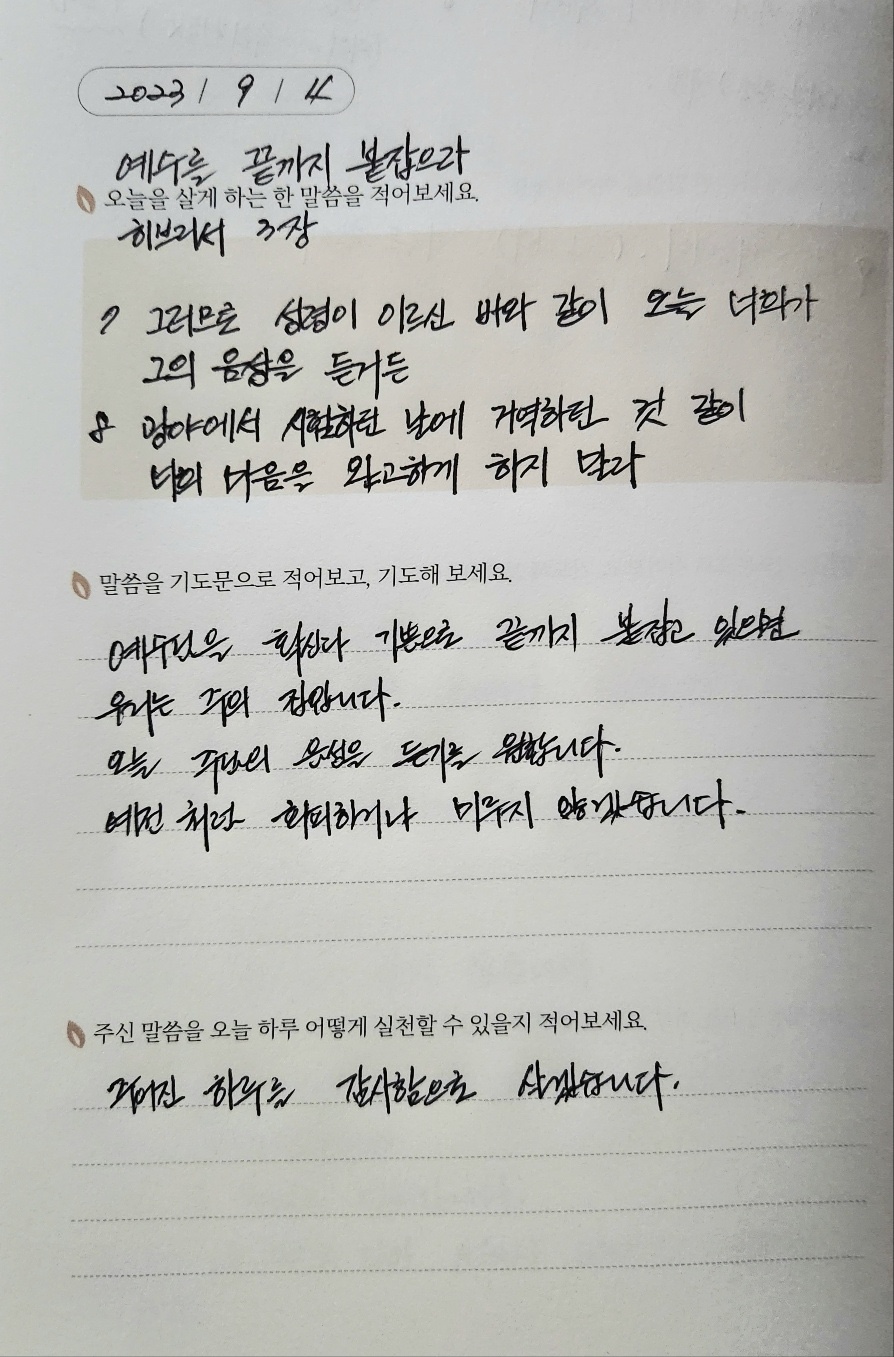 2023 / 9 / 4
예수를 끝까지 붙잡으라
오늘을 살게 하는 한 말씀을 적어보세요.
히브리서 3장
7 그러므로 성령이 이르신 바와 같이 오늘 너희가
그의 음성을 듣거든
8 광야에서 시험하던 날에 거역하던 것 같이
너희 마음을 완고하게 하지 말라
말씀을 기도문으로 적어보고, 기도해 보세요.
예수님을 확신과 기쁨으로 끝까지 붙잡고 있으면
우리는 주의 집입니다.
오늘 주님의 음성을 듣기를 원합니다.
예전 처럼 회피하거나 미루지 않겠습니다.
주신 말씀을 오늘 하루 어떻게 실천할 수 있을지 적어보세요.
주어진 하루를 감사함으로 살겠습니다.